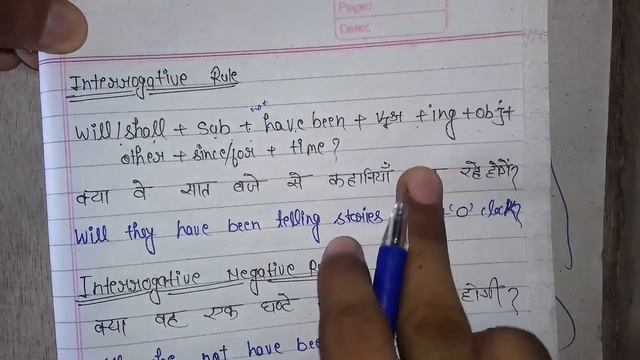 Page:
Date:
Interrogative Rule
Will/shall + Sub + not have been + V₁ + ing + obj +
other + since/for + time?
क्या वे सात बजे से कहानियाँ रहे होंगें?
Will they have been telling stories 'O' clock?
Interrogative Negative
क्या वह एक घण्टे होगी?
not have